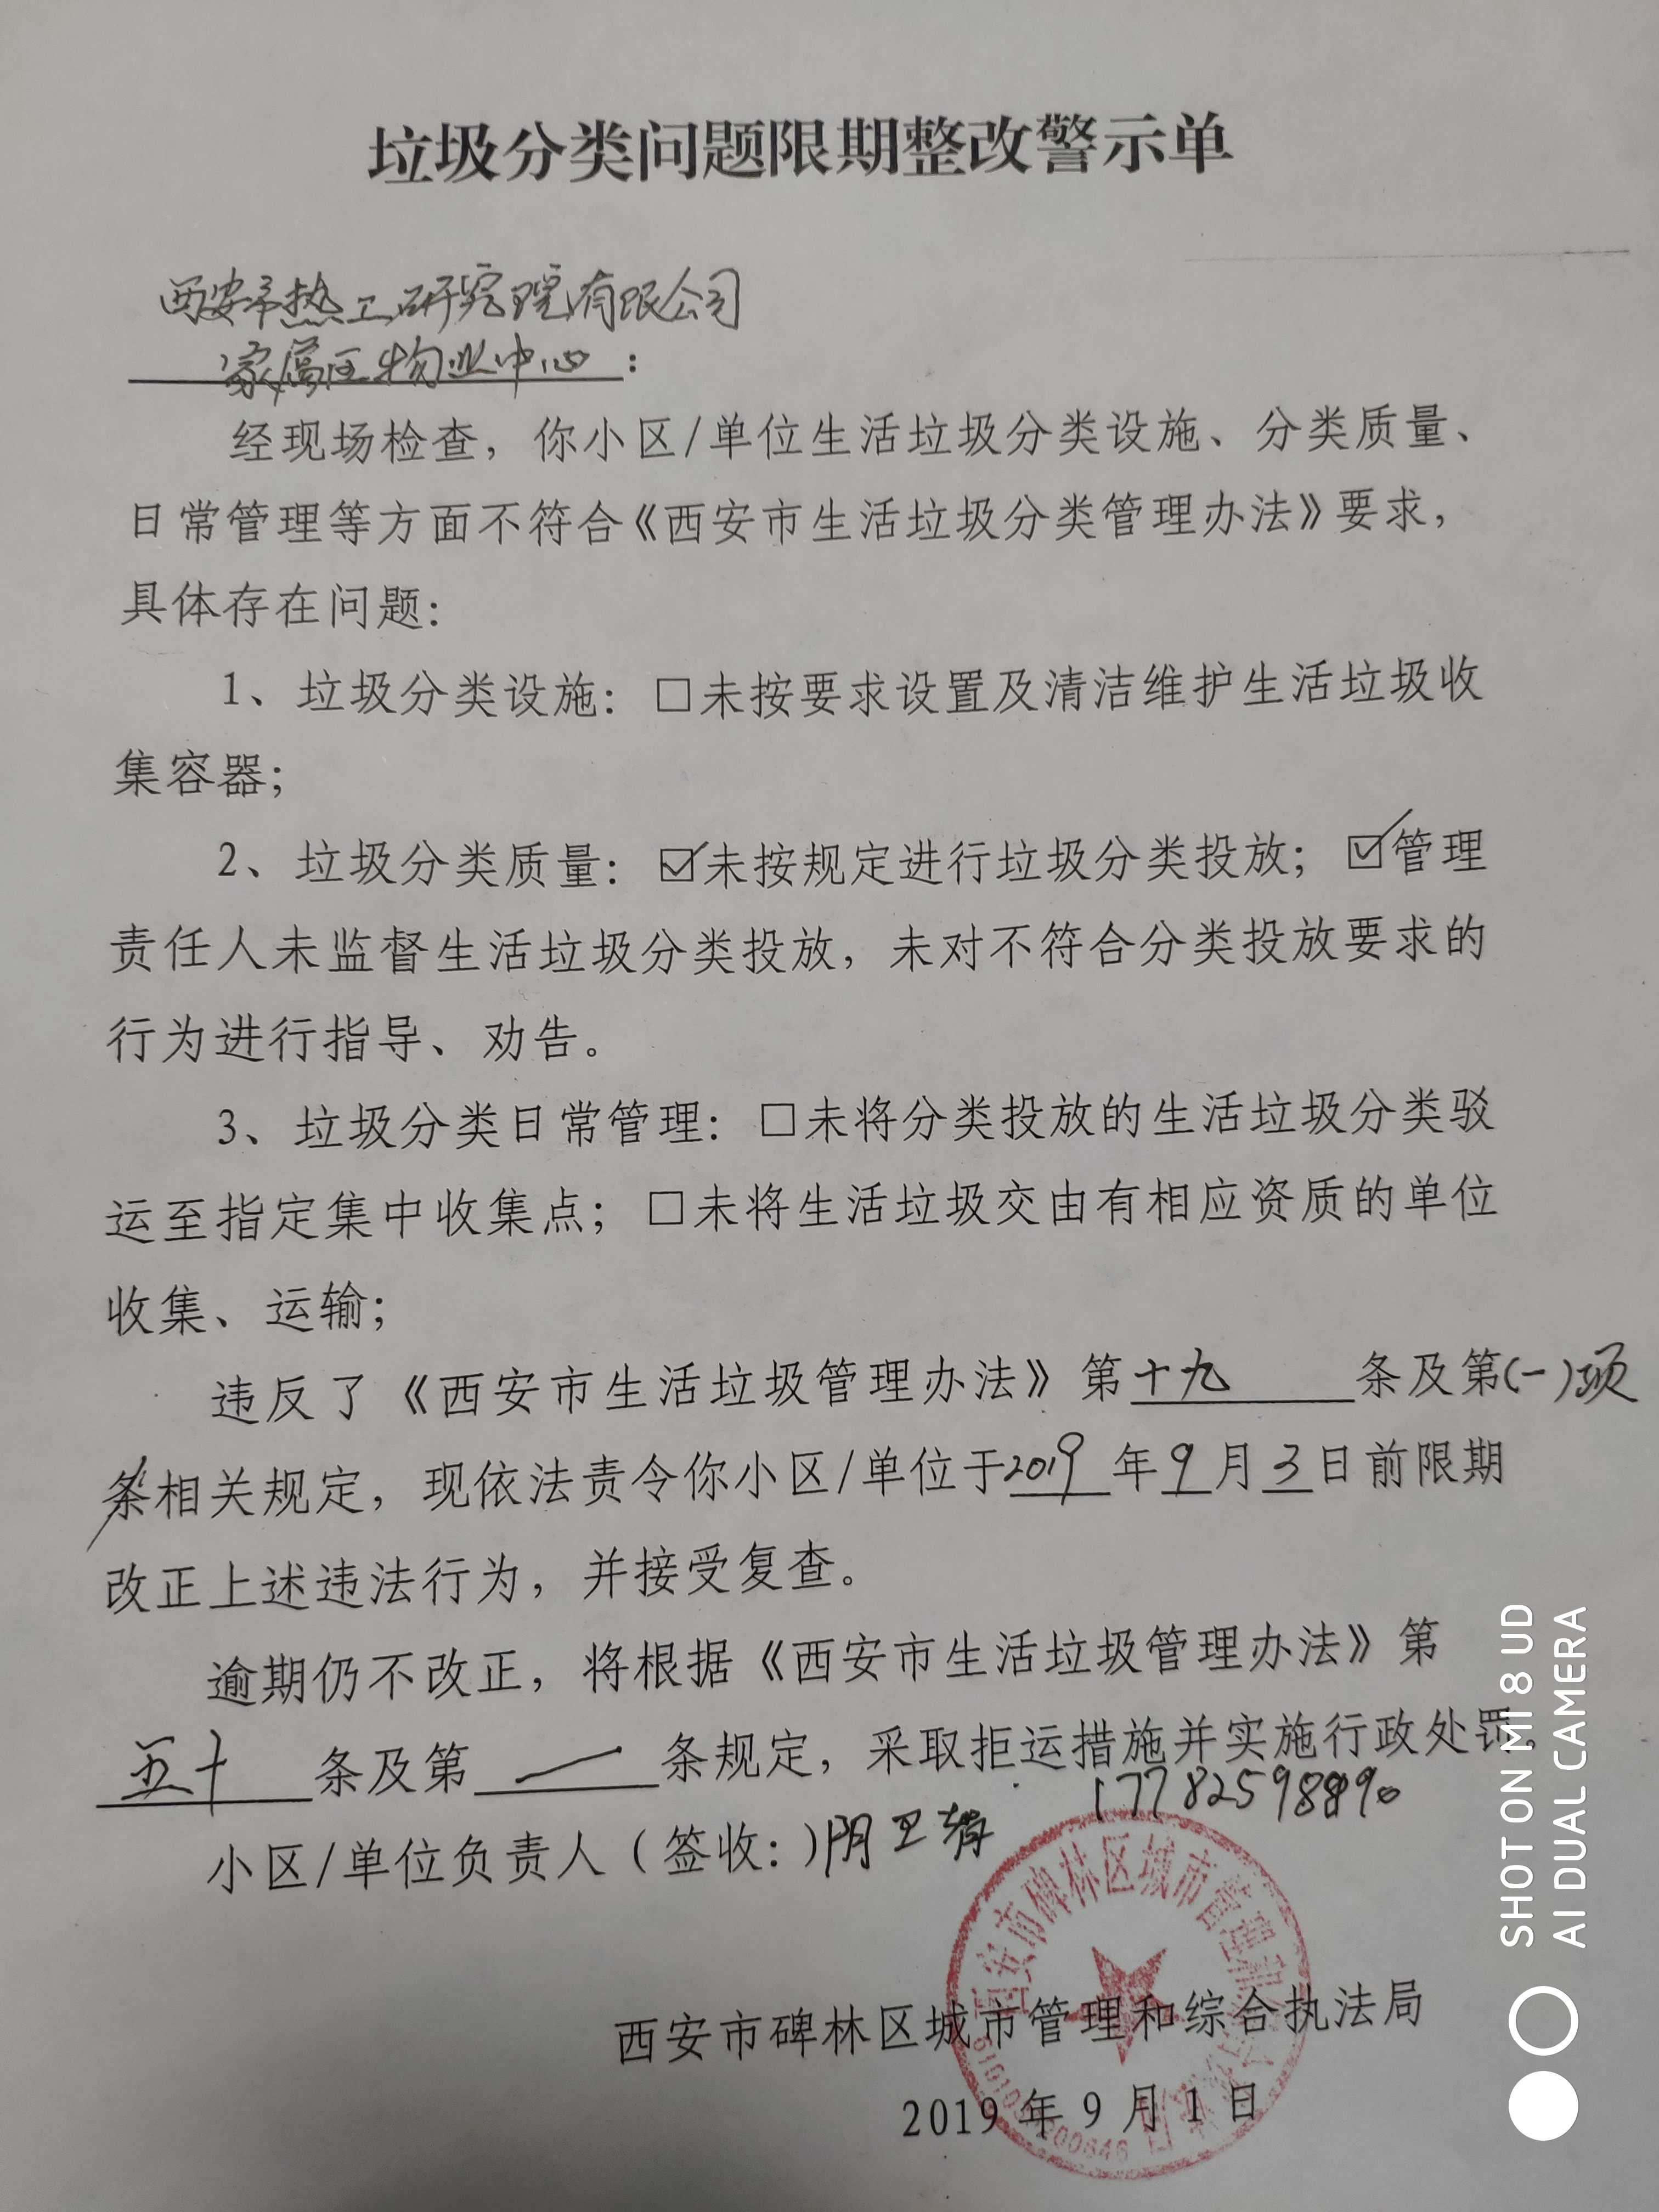 垃圾分类问题限期整改警示单
西安市热工研究院有限公司
家属区物业中心：
经现场检查，你小区/单位生活垃圾分类设施、分类质量、
日常管理等方面不符合《西安市生活垃圾分类管理办法》要求，
具体存在问题：
1、垃圾分类设施：□未按要求设置及清洁维护生活垃圾收
集容器；
2、垃圾分类质量：☑未按规定进行垃圾分类投放；☑管理
责任人未监督生活垃圾分类投放，未对不符合分类投放要求的
行为进行指导、劝告。
3、垃圾分类日常管理：□未将分类投放的生活垃圾分类驳
运至指定集中收集点；□未将生活垃圾交由有相应资质的单位
收集、运输；
违反了《西安市生活垃圾管理办法》第十九条及第(一)项
条相关规定，现依法责令你小区/单位于2019年9月3日前限期
改正上述违法行为，并接受复查。
逾期仍不改正，将根据《西安市生活垃圾管理办法》第
五十条及第 一 条规定，采取拒运措施并实施行政处罚。
小区/单位负责人（签收：）阴卫
西安市碑林区城市管理和综合执法局
2019年9月1日
SHOT ON MI 8 UD
AI DUAL CAMERA